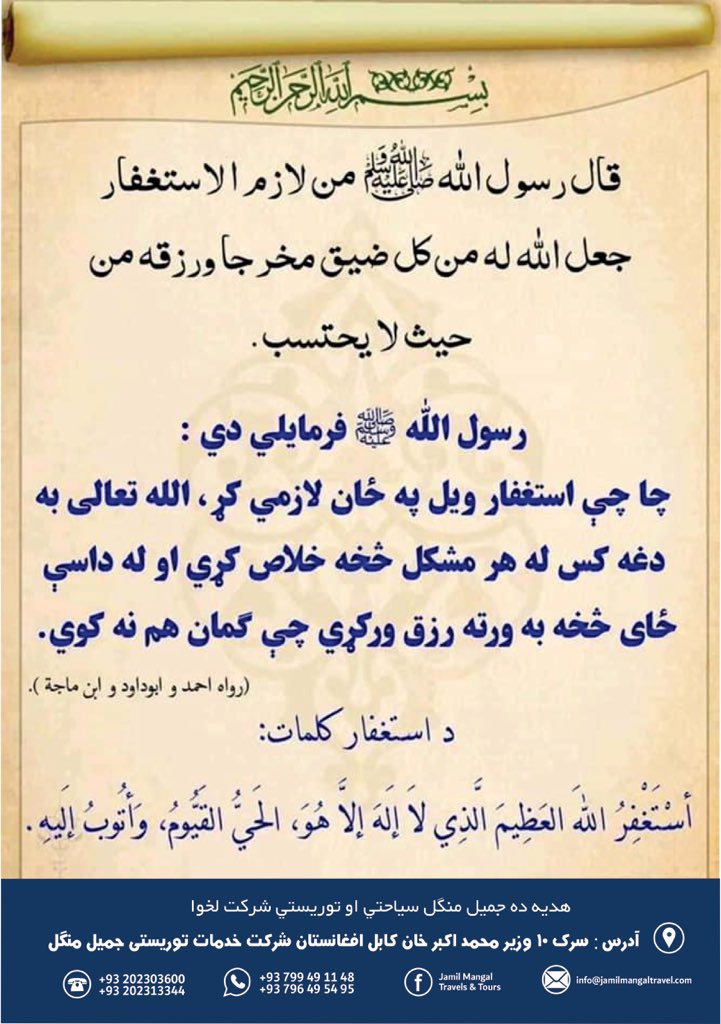 بسم الله الرحمن الرحيم
قال رسول الله ﷺ من لازم الاستغفار
جعل الله له من كل ضيق مخرجا ورزقه من
حيث لا يحتسب.
رسول الله ﷺ فرمايلي دي :
چا چې استغفار ويل په ځان لازمي کړ، الله تعالی به
دغه کس له هر مشکل څخه خلاص کړي او له داسې
ځای څخه به ورته رزق ورکړي چې گمان هم نه کوي.
(رواه احمد و ابوداود و ابن ماجة ).
د استغفار کلمات:
أَسْتَغْفِرُ اللهَ العَظِيمَ الَّذِي لاَ إلَهَ إلاَّ هُوَ، الحَيُّ القَيُّومُ، وَأتُوبُ إلَيهِ.
هدیه ده جمیل منگل سیاحتي او توریستي شرکت لخوا
آدرس : سرک ۱۰ وزیر محمد اکبر خان کابل افغانستان شرکت خدمات توریستی جمیل منگل
+93 202303600
+93 202313344
+93 799 49 11 48
+93 796 49 54 95
Jamil Mangal
Travels & Tours
info@jamilmangaltravel.com